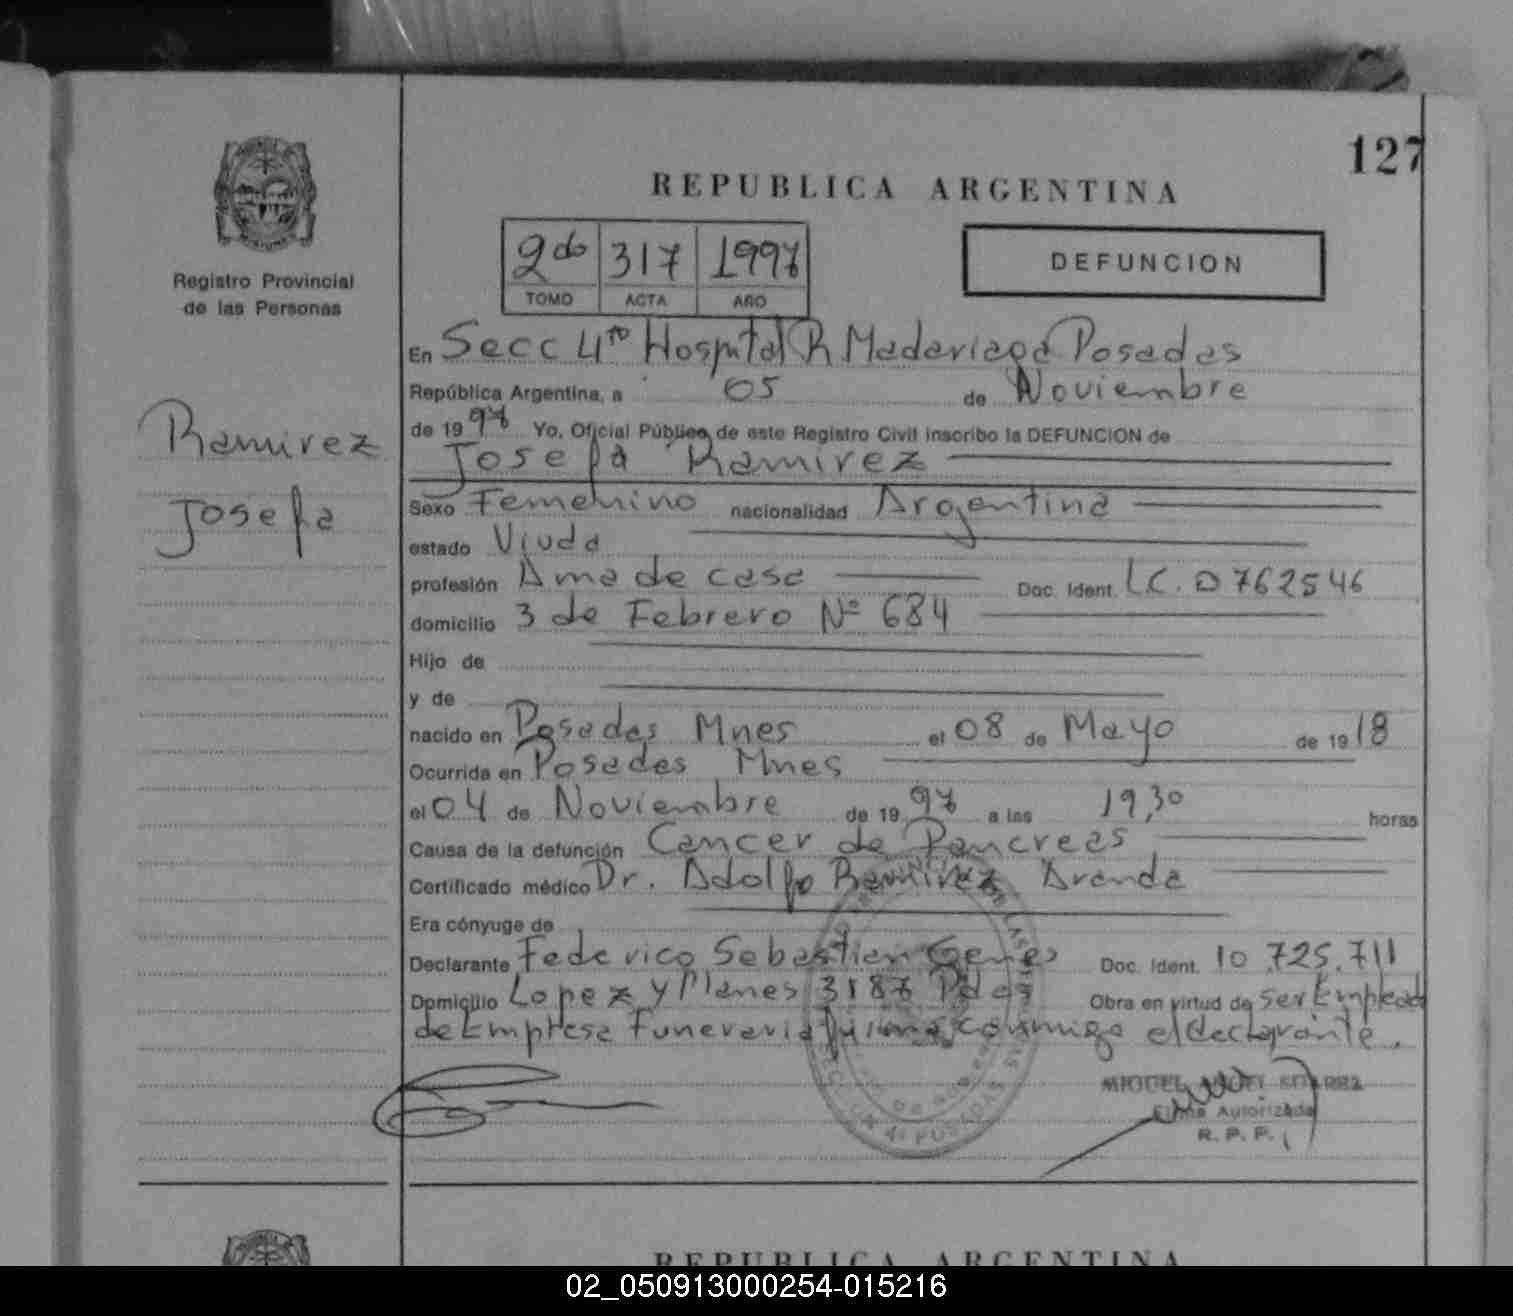 127
REPUBLICA ARGENTINA
Registro Provincial
de las Personas
2do 317 1997
TOMO ACTA AÑO
DEFUNCION
Ramirez
Josefa
En Secc 4ta Hospital R Madariaga Posadas
República Argentina, a 05 de Noviembre
de 1997 Yo, Oficial Público de este Registro Civil inscribo la DEFUNCION de
Josefa Ramirez
Sexo Femenino nacionalidad Argentina
estado Viuda
profesión Ama de casa Doc. Ident. LC. 0762546
domicilio 3 de Febrero Nº 684
Hijo de
y de
nacido en Posadas Mnes el 08 de Mayo de 1918
Ocurrida en Posadas Mnes
el 04 de Noviembre de 1997 a las 19,30 horas
Causa de la defunción Cancer de Pancreas
Certificado médico Dr. Adolfo Ramirez Aranda
Era cónyuge de
Declarante Federico Sebastian Genes Doc. Ident. 10.725.711
Domicilio Lopez y Planes 3187 Pdas Obra en virtud de ser Empleado
de Empresa Funeraria firma conmigo el declarante.
MIGUEL
Firma Autorizada
R. P. P.
REPUBLICA ARGENTINA
02_050913000254-015216